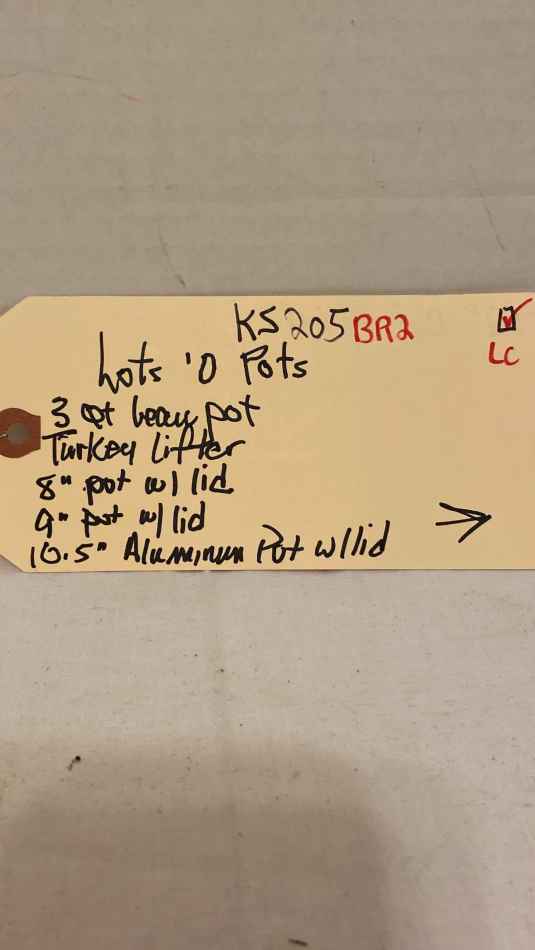 KS205 BR2
LC
Lots 'O Pots
3 Qt heavy pot
Turkey Lifter
8" pot w/ lid
9" pot w/ lid
10.5" Aluminum Pot w/lid